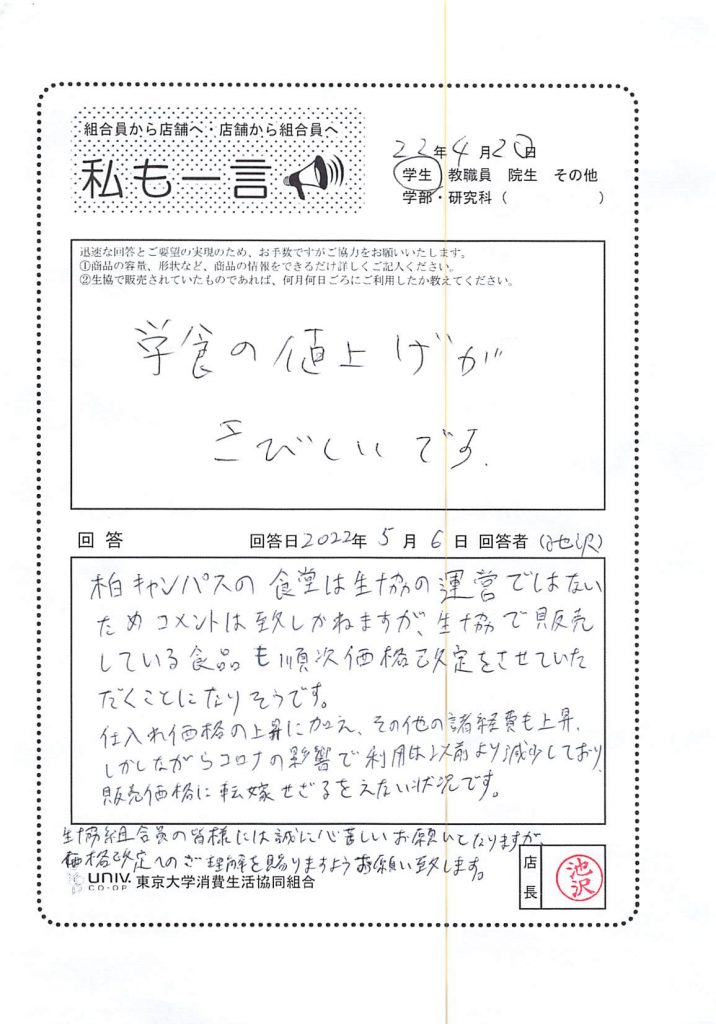 組合員から店舗へ・店舗から組合員へ
私も一言
22年4月20日
学生 教職員 院生 その他
学部・研究科( )
迅速な回答とご要望の実現のため、お手数ですがご協力をお願いいたします。
①商品の容量、形状など、商品の情報をできるだけ詳しくご記入ください。
②生協で販売されていたものであれば、何月何日ごろにご利用したか教えてください。
学食の値上げが
きびしいです.
回答 回答日2022年5月6日 回答者(池沢)
柏キャンパスの食堂は生協の運営ではない
ためコメントは致しかねますが、生協で販売
している食品も順次価格改定をさせていた
だくことになりそうです。
仕入れ価格の上昇に加え、その他の諸経費も上昇、
しかしながらコロナの影響で利用は以前より減少しており、
販売価格に転嫁せざるをえない状況です。
生協組合員の皆様には誠に心苦しいお願いとなりますが、
価格改定へのご理解を賜りますようお願い致します。
UNIV. CO-OP 東京大学消費生活協同組合
店長 池沢